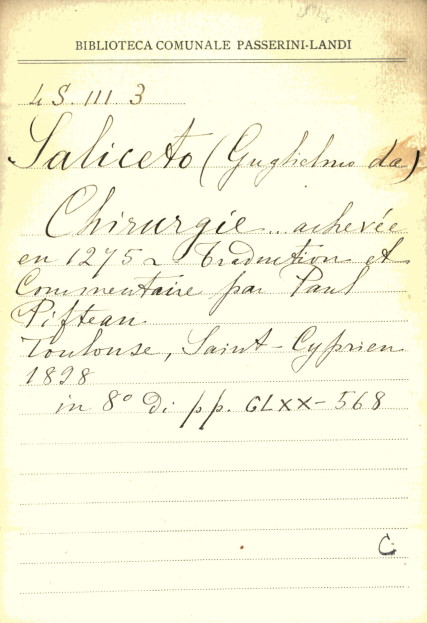 BIBLIOTECA COMUNALE PASSERINI-LANDI
4 S. III. 3
Saliceto (Guglielmo da)
Chirurgie .. achevée
en 1275 ~ Traduction et
Commentaire par Paul
Pifteau
Toulouse, Saint-Cyprien
1898
in 8° di pp. CLXX-568
C